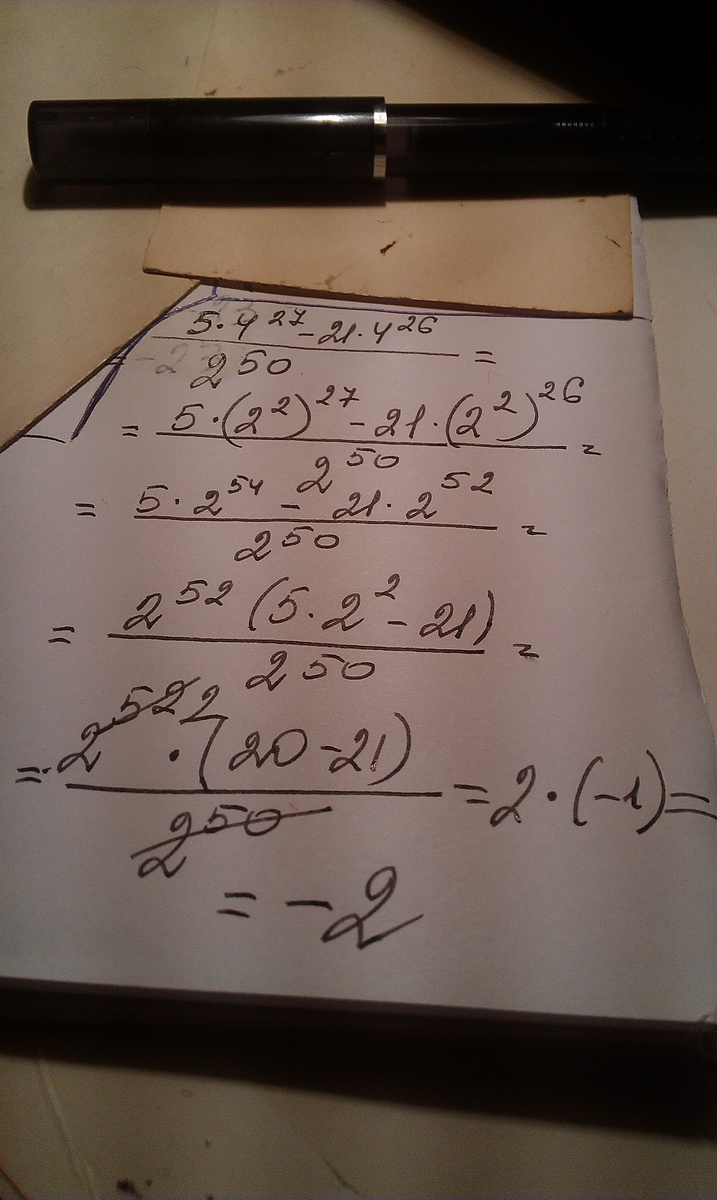 5·4^27 - 21·4^26 / 2^50 =
= 5·(2^2)^27 - 21·(2^2)^26 / 2^50 =
= 5·2^54 - 21·2^52 / 2^50 =
= 2^52 (5·2^2 - 21) / 2^50 =
= 2^52 2 · (20 - 21) / 2^50 = 2·(-1) =
= -2